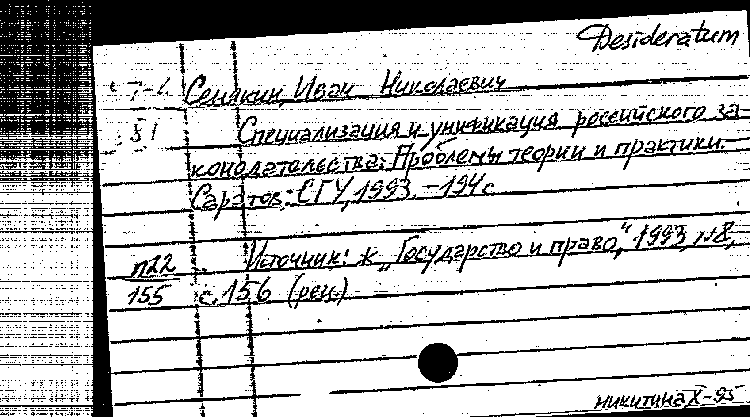 Desideratum
Сенякин, Иван Николаевич
81 Специализация и унификация российского за-
конодательства: Проблемы теории и практики.
Саратов: СГУ, 1993. - 194 с.
п22 Источник: ж. „Государство и право“, 1993, №8,
155 с. 156 (рец.)
никитина X-95